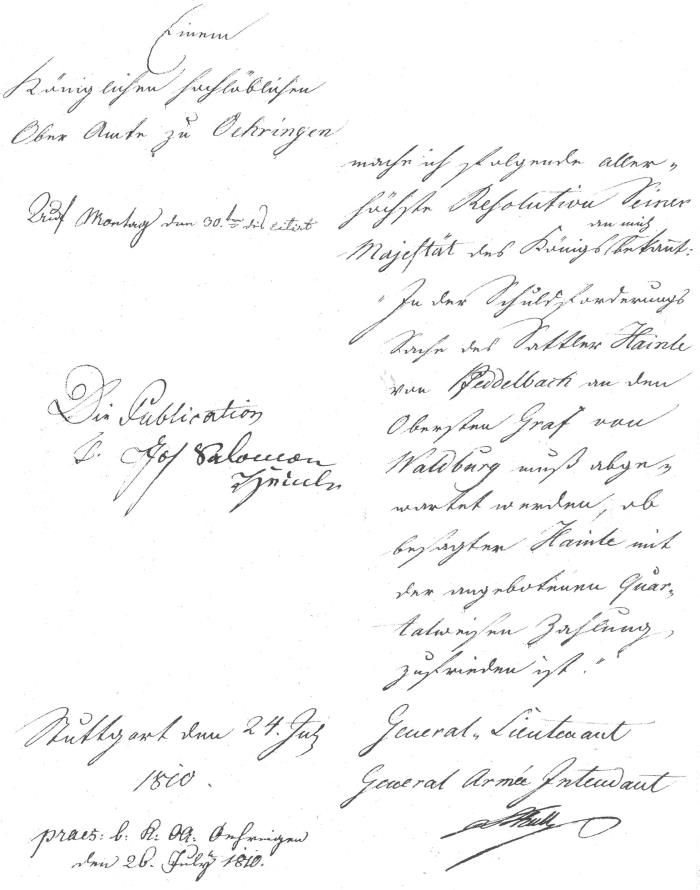 Einem
Königlichen hochlöblichen
Ober Amte zu Oehringen
mache ich folgende aller-
höchste Resolution Seiner
an mich
Majestät des Königs bekannt:
"In der Schuldforderungs
Sache des Sattler Hainle
von Pfeddelbach an den
Obersten Graf von
Waldburg muß abge-
wartet werden, ob
besagter Hainle mit
der angebotenen Quar-
talweisen Zahlung,
zufrieden ist."
Auf Montag den 30.ten des citirt
Die Publication
t. Jos Salomon
Heinle
Stuttgart den 24. July
1810.
General-Lieutenant
General Armée Intendant
praes: b. K. OA. Oehringen
den 26. July 1810.